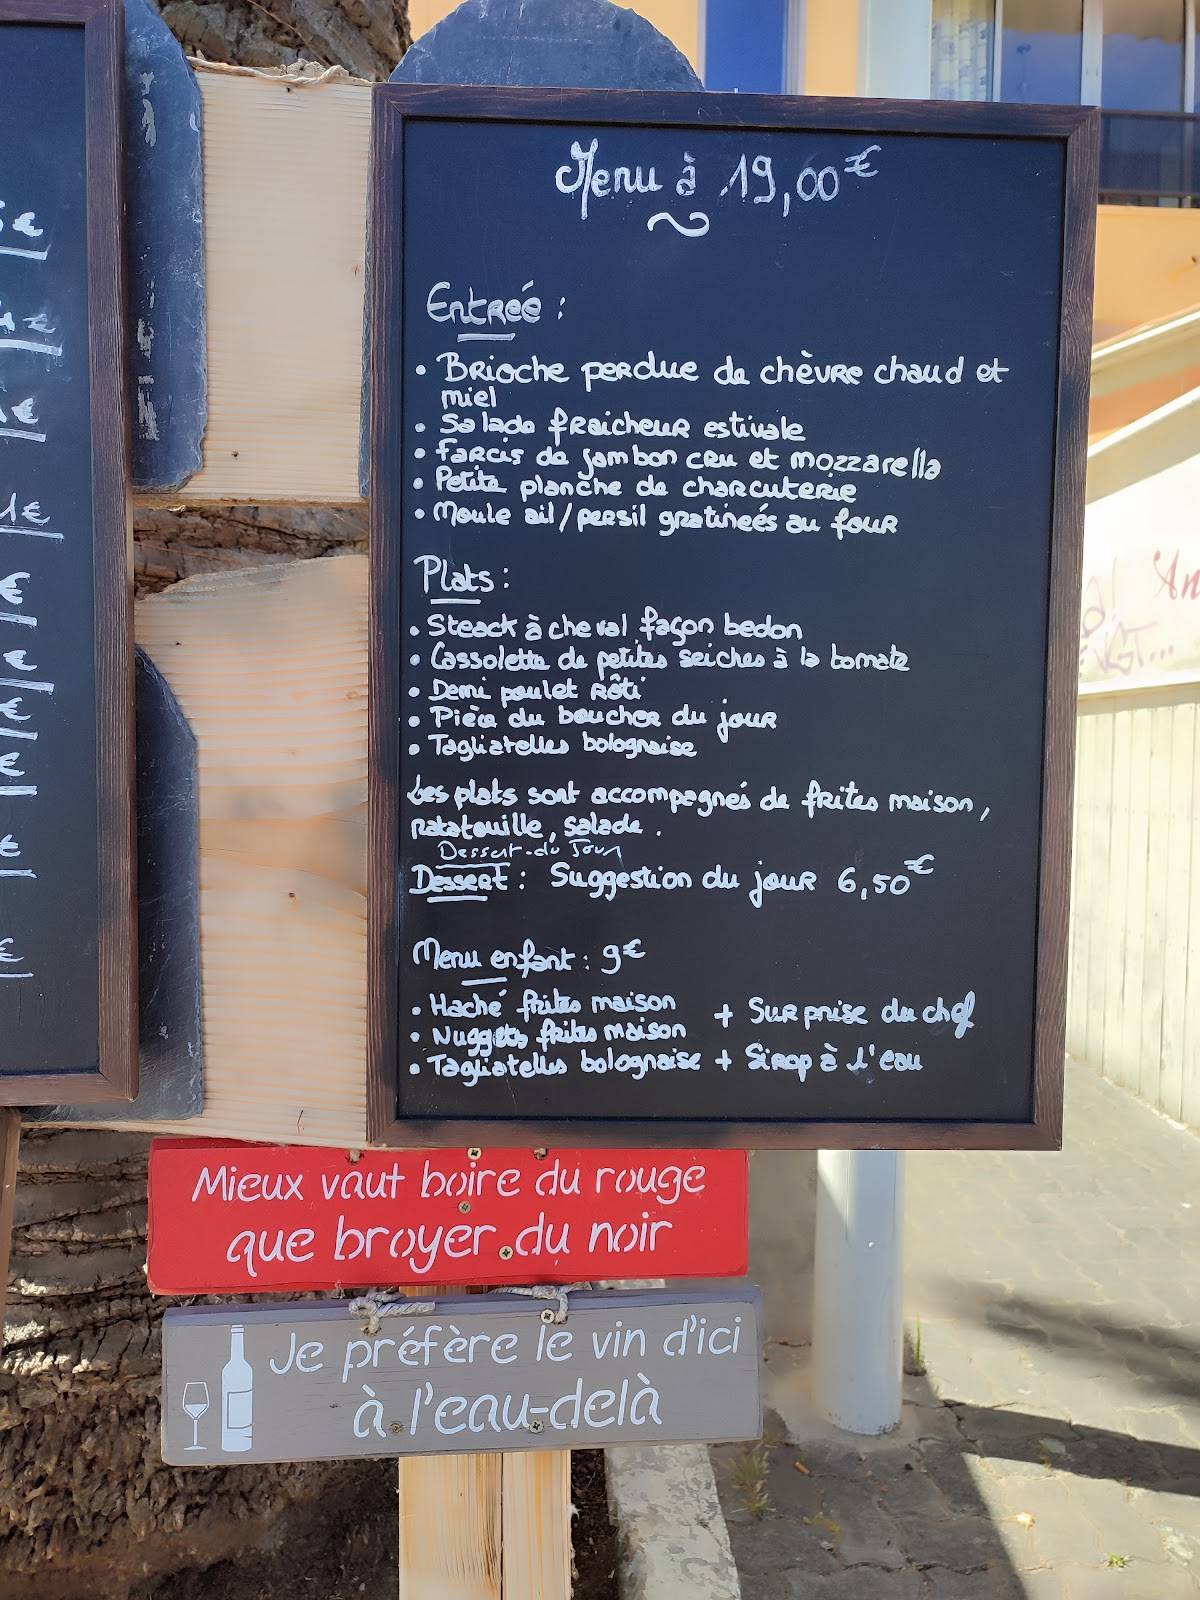 Menu à 19,00€
Entreé :
• Brioche perdue de chèvre chaud et
miel
• Salade fraicheur estivale
• Farcis de jambon cru et mozzarella
• Petite planche de charcuterie
• Moule ail/persil gratineés au four
Plats :
• Steack à cheval façon bedon
• Cassolette de petites seiches à la tomate
• Demi poulet rôti
• Pièce du boucher du jour
• Tagliatelles bolognaise
Les plats sont accompagnés de frites maison,
ratatouille, salade.
Dessert du Jour
Dessert : Suggestion du jour 6,50€
Menu enfant : 9€
• Haché frites maison + Surprise du chef
• Nuggets frites maison
• Tagliatelles bolognaise + Sirop à l'eau
Mieux vaut boire du rouge
que broyer du noir
Je préfère le vin d'ici
à l'eau-delà